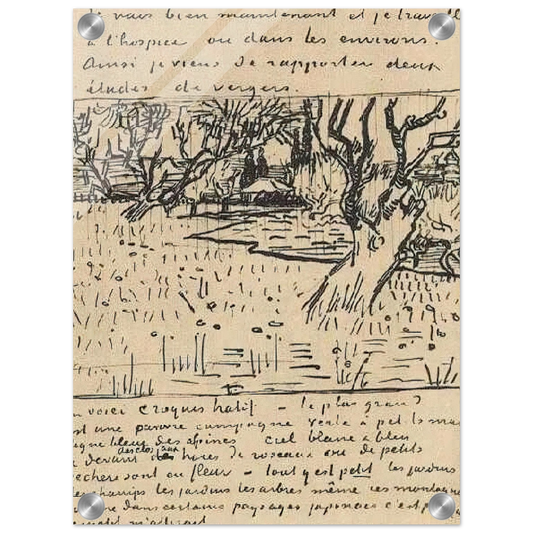 vais bien maintenant et je travaille
à l'hospice ou dans les environs.
Ainsi je viens de rapporter deux
études de vergers.
voici croquis hatif – le plus grand
une pauvre campagne verte à petits mas
ligne bleue des alpines ciel blanc & bleu
devant des clos aux haies de roseaux où de petits
pechers sont en fleur – tout y est petit les jardins
les champs les jardins les arbres même ces montagnes
comme dans certains paysages japonais c'est pourquoi
motif m'attirait